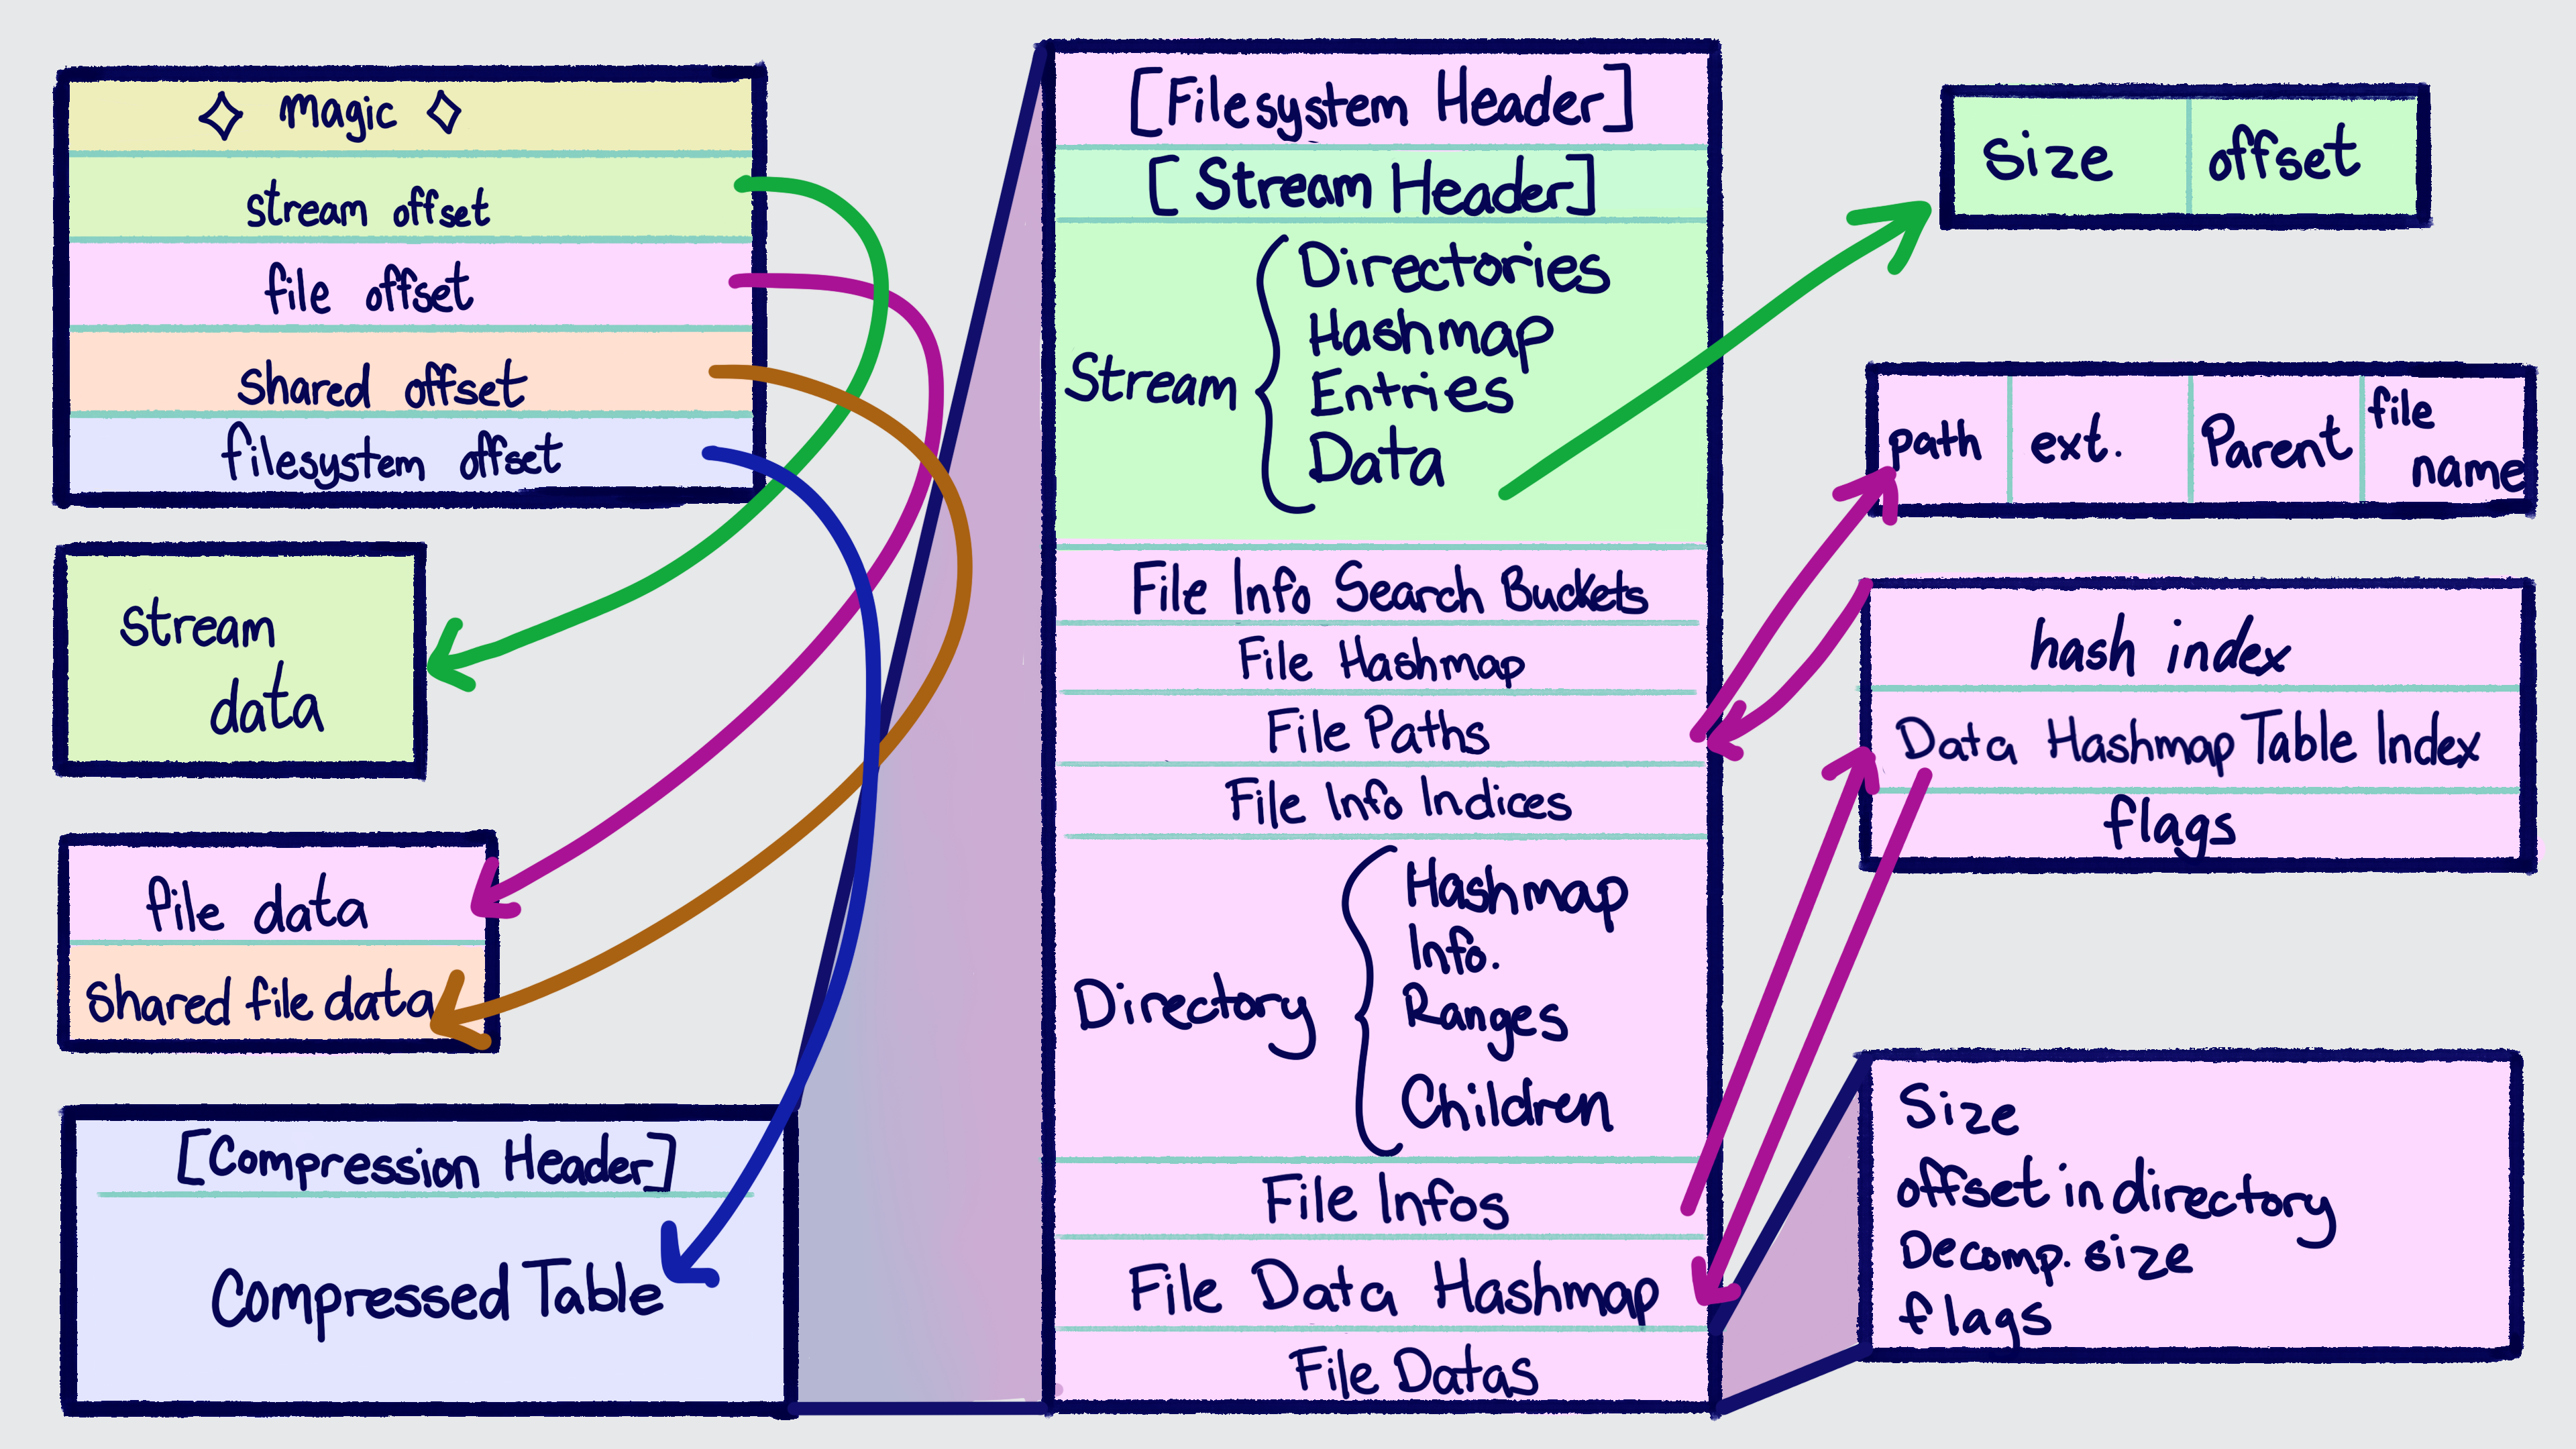 Magic
stream offset
file offset
shared offset
filesystem offset
stream
data
file data
shared file data
[Compression Header]
Compressed Table
[Filesystem Header]
[Stream Header]
Stream
Directories
Hashmap
Entries
Data
File Info Search Buckets
File Hashmap
File Paths
File Info Indices
Directory
Hashmap
Info.
Ranges
Children
File Infos
File Data Hashmap
File Datas
Size
offset
path
ext.
Parent
file
name
hash index
Data Hashmap Table Index
flags
Size
offset in directory
Decomp. size
flags